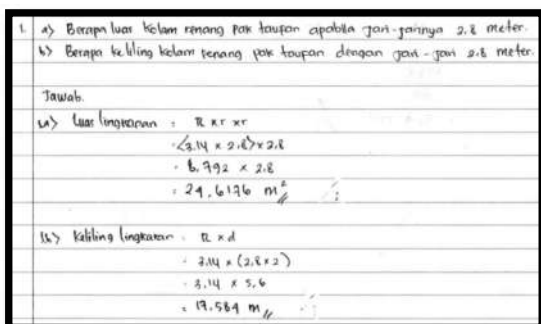 1. a) Berapa luas kolam renang pak taufan apabila jari-jarinya 2.8 meter.
b) Berapa keliling kolam renang pak taufan dengan jari-jari 2.8 meter.
Jawab.
(a) Luas lingkaran : π x r x r
= (3.14 x 2.8) x 2.8
= 8,792 x 2.8
= 24,6176 m²
(b) Keliling lingkaran : π x d
= 3.14 x (2,8 x 2)
= 3.14 x 5,6
= 17.584 m